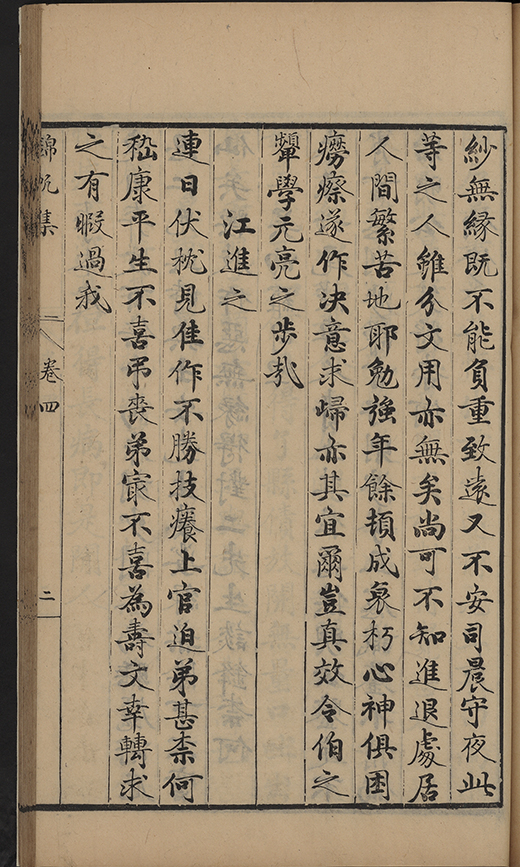 紗無緣既不能負重致遠又不安司晨守夜此
等之人雖分文用亦無矣尚可不知進退處居
人間繁苦地耶勉強年餘頓成衰朽心神俱困
癆瘵遂作决意求歸亦其宜爾豈真效令伯之
顰學元亮之步哉
江進之
連日伏枕見佳作不勝技癢上官迫弟甚柰何
嵇康平生不喜弔喪弟寔不喜為壽文幸轉求
之有暇過我
錦帆集
卷四
二